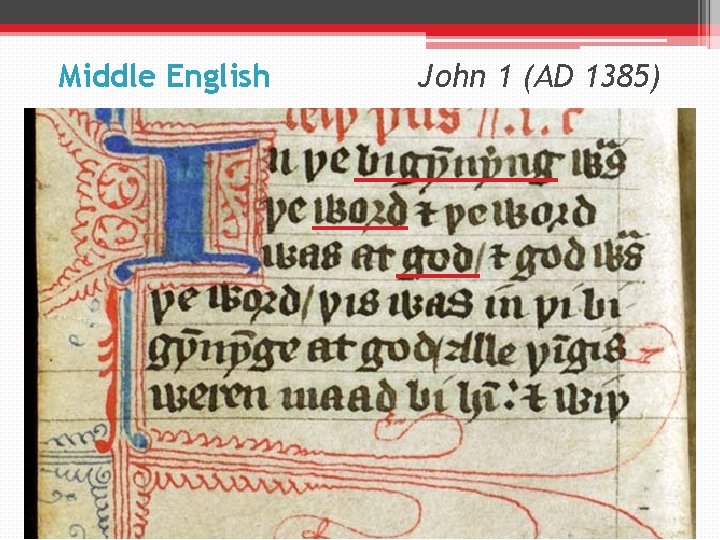 Middle English
John 1 (AD 1385)
In þe bigȳnẏng wᵃs
þe word ⁊ þe word
was at god/ ⁊ god wᵃs
þe word/ þis was in þi bi
gȳnȳge at god/ Alle þīgis
weren maad bi hī: ⁊ wiþ